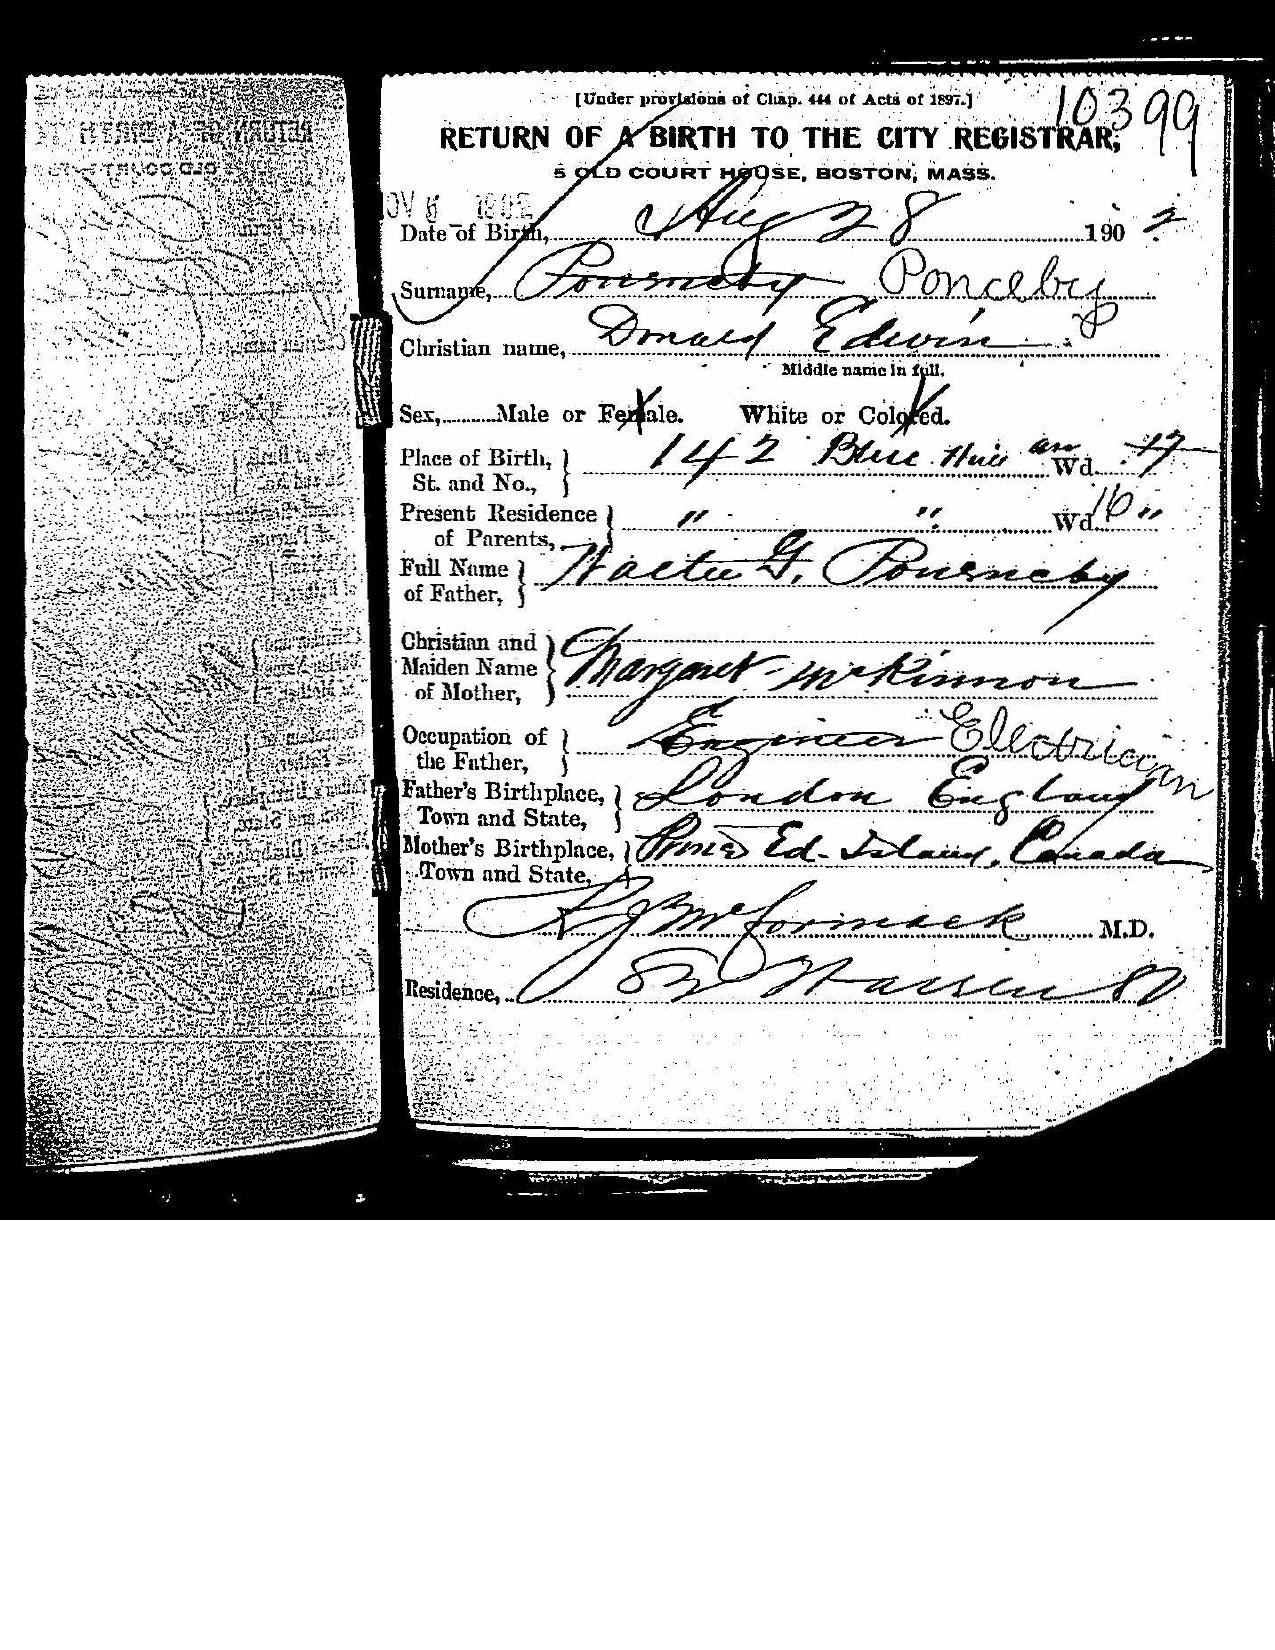 [Under provisions of Chap. 444 of Acts of 1897.]
10399
RETURN OF A BIRTH TO THE CITY REGISTRAR,
5 OLD COURT HOUSE, BOSTON, MASS.
NOV 6 1902
Date of Birth, Aug 28 1902
Surname, Pounceby Ponceby
Christian name, Donald Edwin
Middle name in full.
Sex, Male or Female. White or Colored.
Place of Birth, St. and No., 142 Blue Hill av Wd. 17
Present Residence of Parents, " " Wd. 16 "
Full Name of Father, Walter G. Pounceby
Christian and Maiden Name of Mother, Margaret McKinnon
Occupation of the Father, Engineer Electrician
Father's Birthplace, Town and State, London England
Mother's Birthplace, Town and State, Prince Ed. Island, Canada
McCormack M.D.
Residence, Warren St